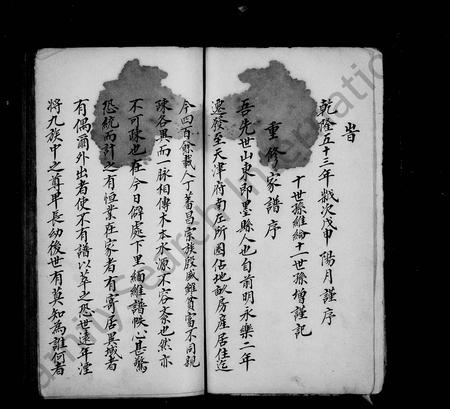 旹
乾隆五十三年歲次戊申陽月謹序
十世孫維綸十一世孫增謹記
重修家譜序
吾先世山東即墨縣人也自前明永樂二年
遷發至天津府南庄所圈佔地畝房產居住迄
今四百餘載人丁蕃昌宗族殷盛雖貧富不同親
疎各異而一脈相傳木本水源不容紊也然亦
不可疎也在今日僻處下里緬維譜帙心甚驚
恐統而計之有恒業在家者有寄居異域者
有偶爾外出者使不有譜以萃之恐世遠年湮
將九族中之尊卑長幼後世有莫知為誰何者
FamilySearch International